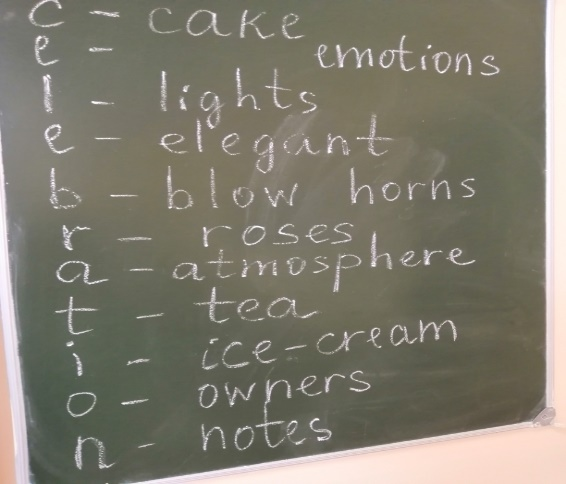 c - cake
e - emotions
l - lights
e - elegant
b - blow horns
r - roses
a - atmosphere
t - tea
i - ice-cream
o - owners
n - notes